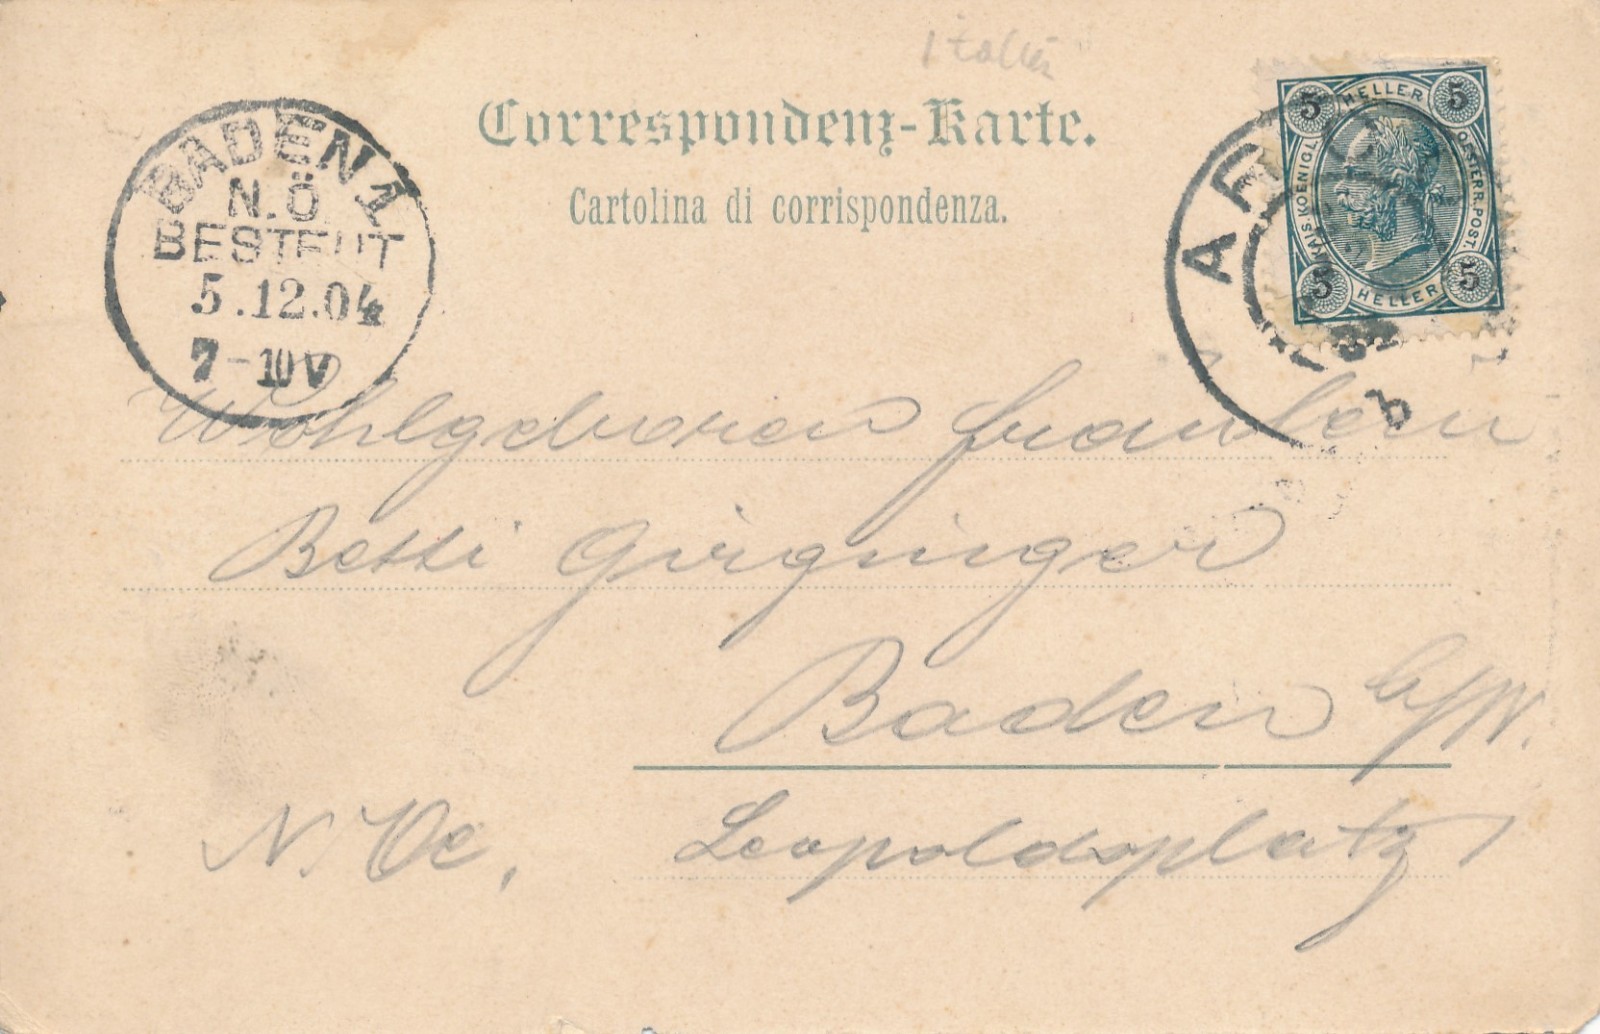 Italien
Correspondenz-Karte.
Cartolina di corrispondenza.
BADEN 1
N.Ö
BESTELLT
5.12.04
7-10V
5 HELLER 5
KAIS. KOENIGL. OESTERR. POST.
5 HELLER 5
AR
b
Wohlgeboren Fräulein
Betti Girginger
Baden b/W.
N. Oe. Leopoldsplatz 1